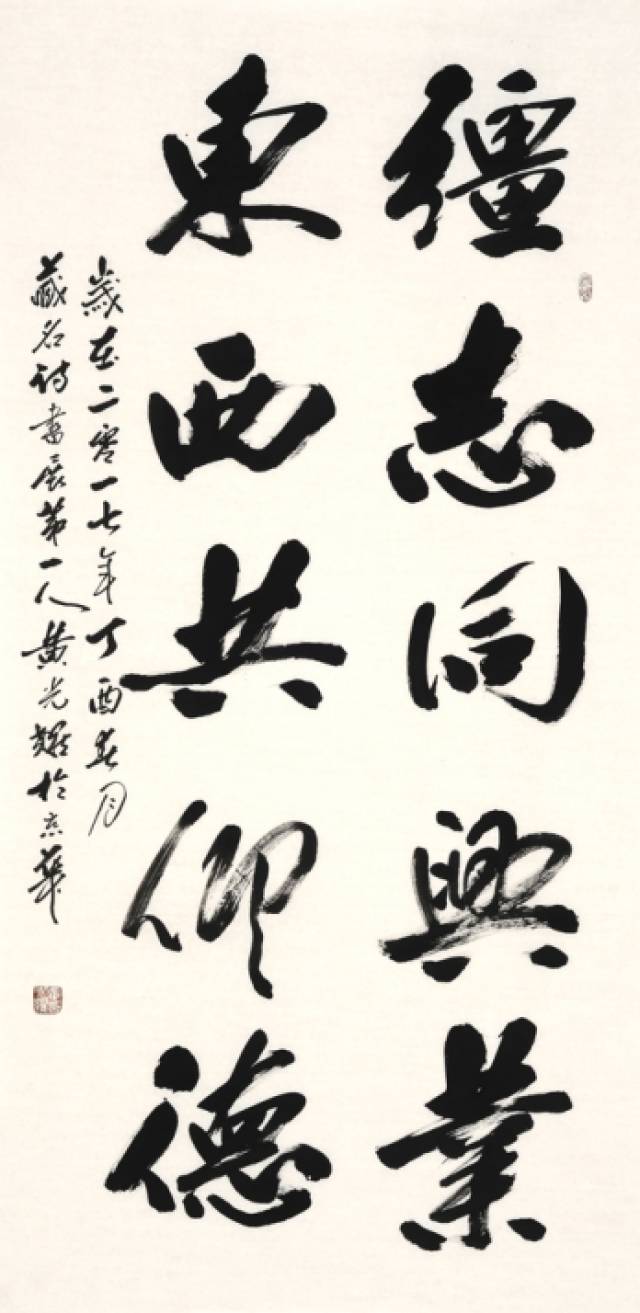 疆志同興業
東西共仰德
歲在二零一七年丁酉春月
藏名詩書展第一人黄光耀於京華